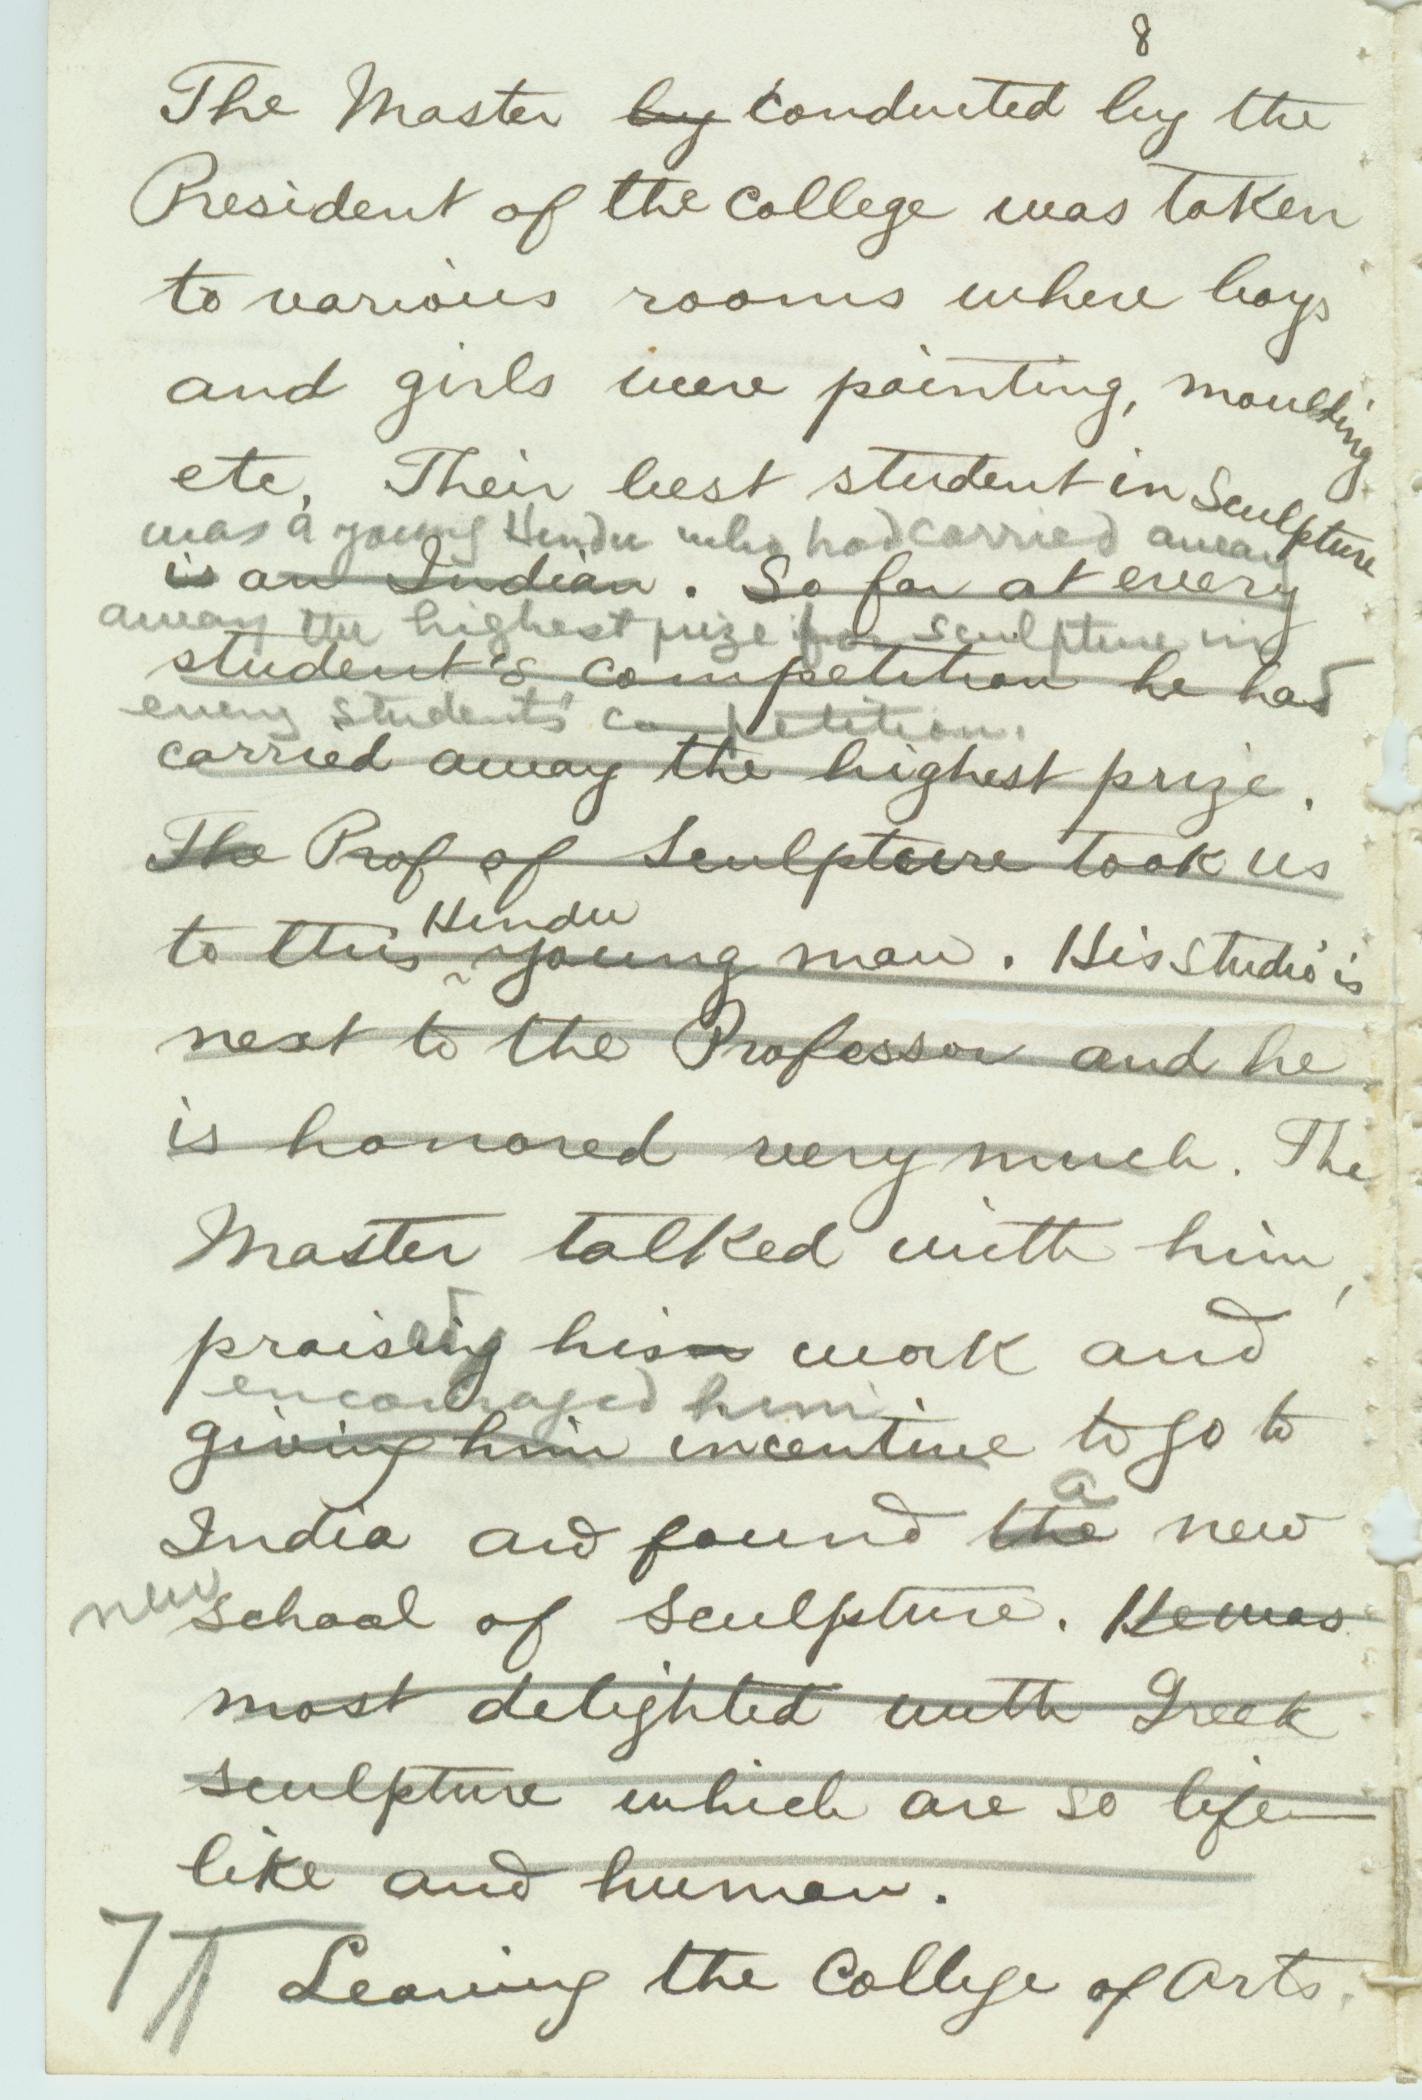 8
The Master by conducted by the
President of the College was taken
to various rooms where boys
and girls were painting, moulding
etc, Their best student in Sculpture
was a young Hindu who had carried away
is an Indian. So far at every
away the highest prize for sculpture in
student's competition he had
every students' competition.
carried away the highest prize.
The Prof of Sculpture took us
Hindu
to this young man. His studio is
next to the Professor and he
is honored very much. The
Master talked with him,
praising his work and
encouraged him
giving him incentive to go to
a
India and found the new
new school of sculpture. He was
most delighted with Greek
sculpture which are so life
like and human.
7 Leaving the College of Arts.